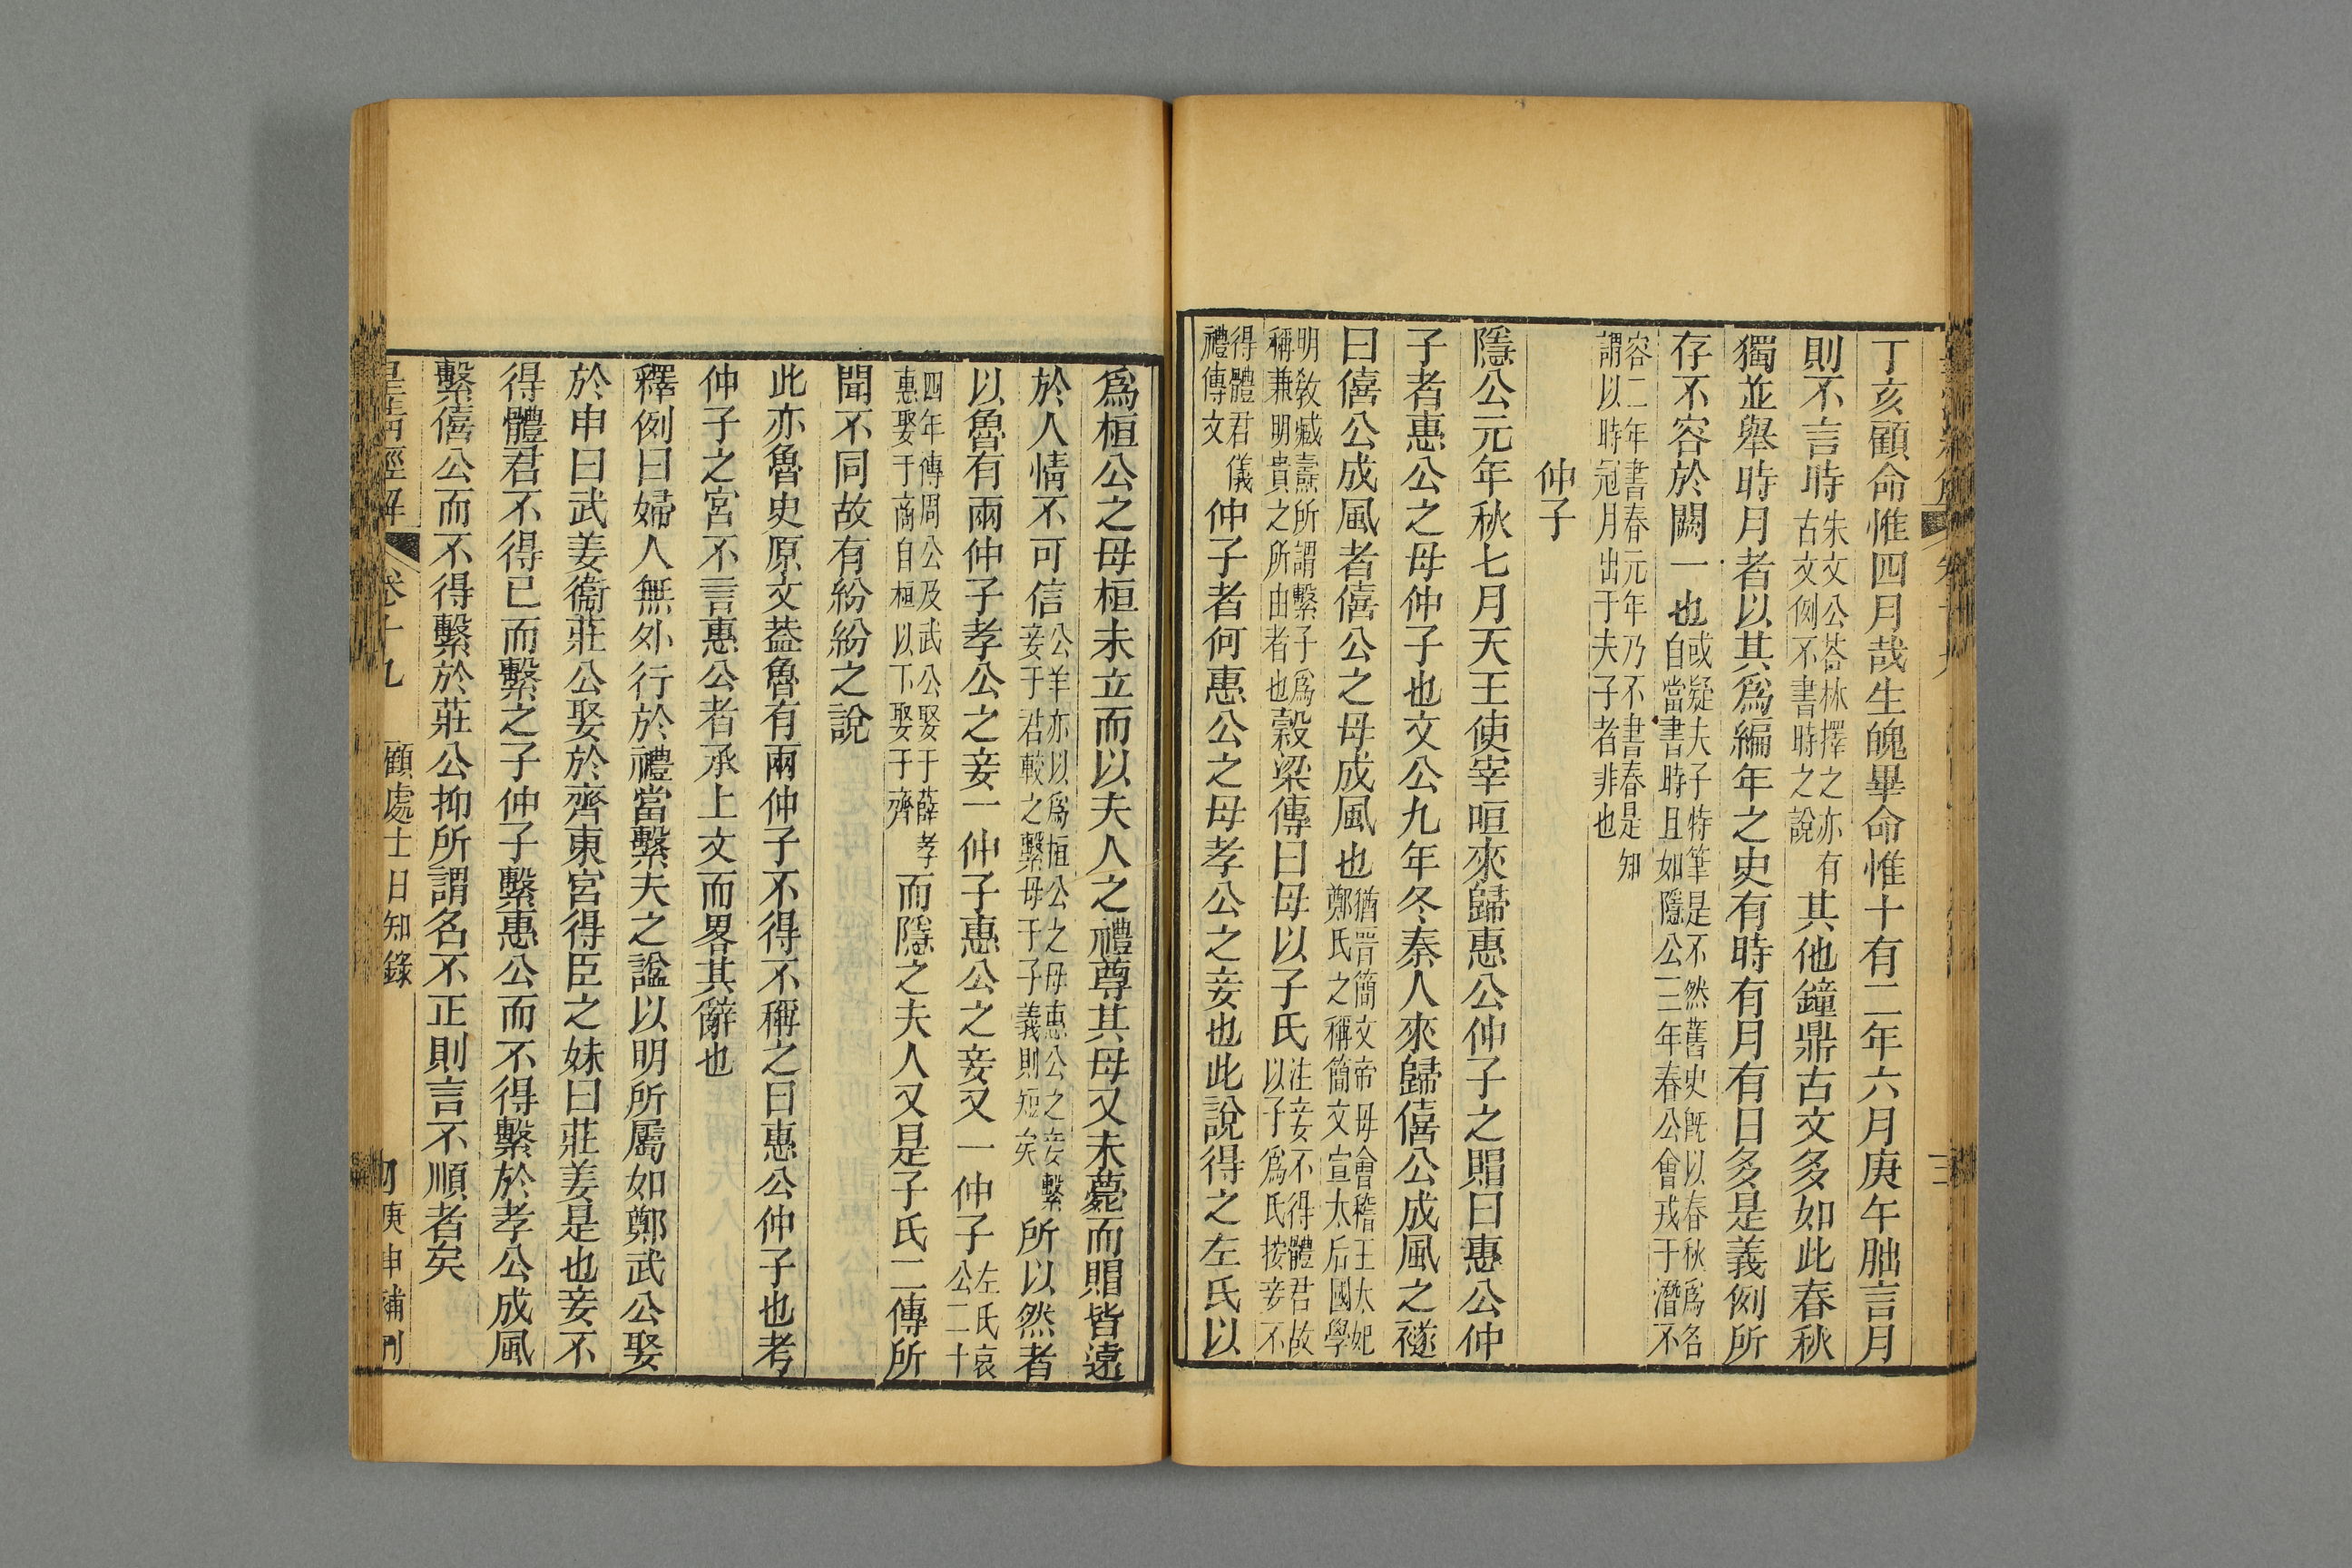 丁亥顧命惟四月哉生魄畢命惟十有二年六月庚午朏言月
則不言時朱文公荅林擇之亦有古文例不書時之說其他鐘鼎古文多如此春秋
獨並舉時月者以其爲編年之史有時有月有日多是義例所
存不容於闕一也或疑夫子特筆是不然舊史旣以春秋爲名自當書時且如隱公二年春公會戎于潛不
容二年書春元年乃不書春是知謂以時冠月出于夫子者非也
仲子
隱公元年秋七月天王使宰咺來歸惠公仲子之賵曰惠公仲
子者惠公之母仲子也文公九年冬秦人來歸僖公成風之襚
曰僖公成風者僖公之母成風也猶晉簡文帝母會稽王太妃鄭氏之稱簡文宣太后國學
明敎臧燾所謂繫子爲稱兼明貴之所由者也穀梁傳曰母以子氏注妾不得體君故以子爲氏按妾不
得體君儀禮傳文仲子者何惠公之母孝公之妾也此說得之左氏以
爲桓公之母桓未立而以夫人之禮尊其母又未薨而賵皆遠
於人情不可信公羊亦以爲桓公之母惠公之妾繫妾于君較之繫母于子義則短矣所以然者
以魯有兩仲子孝公之妾一仲子惠公之妾又一仲子左氏哀公二十
四年傳周公及武公娶于薛孝惠娶于商自桓以下娶于齊而隱之夫人又是子氏二傳所
聞不同故有紛紛之說
此亦魯史原文葢魯有兩仲子不得不稱之曰惠公仲子也考
仲子之宮不言惠公者承上文而畧其辭也
釋例曰婦人無外行於禮當繫夫之謚以明所屬如鄭武公娶
於申曰武姜衞莊公娶於齊東宮得臣之妹曰莊姜是也妾不
得體君不得已而繫之子仲子繫惠公而不得繫於孝公成風
繫僖公而不得繫於莊公抑所謂名不正則言不順者矣
皇淸經解 卷十九 顧處士日知錄 庚申補刊